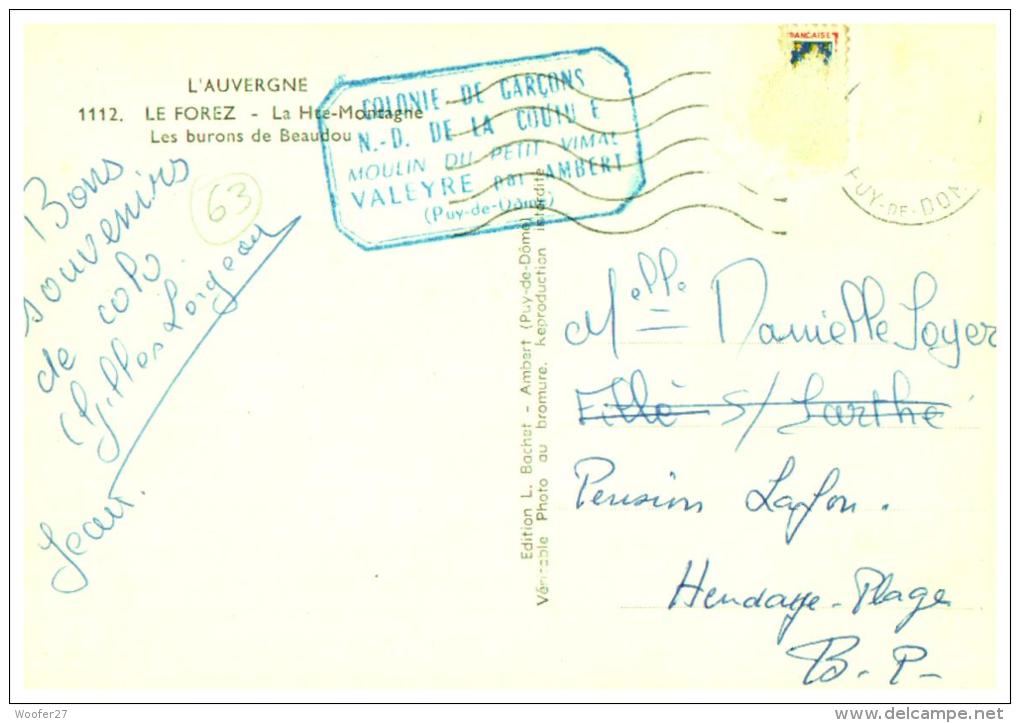 L'AUVERGNE
1112. LE FOREZ - La Hte-Montagne
Les burons de Beaudou
COLONIE DE GARÇONS
N.-D. DE LA COUTU E
MOULIN DU PETIT VIMAL
VALEYRE par AMBERT
(Puy-de-Dôme)
FRANCAISE
PUY-DE-DOM
63
Bons
souvenirs
de colo
Gilles
Jean.
Edition L. Bachet - Ambert (Puy-de-Dôme)
Véritable Photo au bromure. Reproduction interdite
Melle Danielle Soyer
Fillé s/ Sarthe
Pension Lafon.
Hendaye-Plage
B.P-
Woofer27
delcampe.net